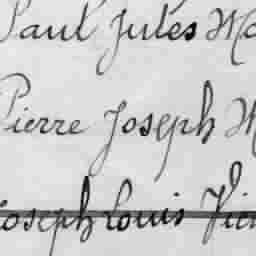 Paul Jules Ma
Pierre Joseph M
Joseph Louis Vic